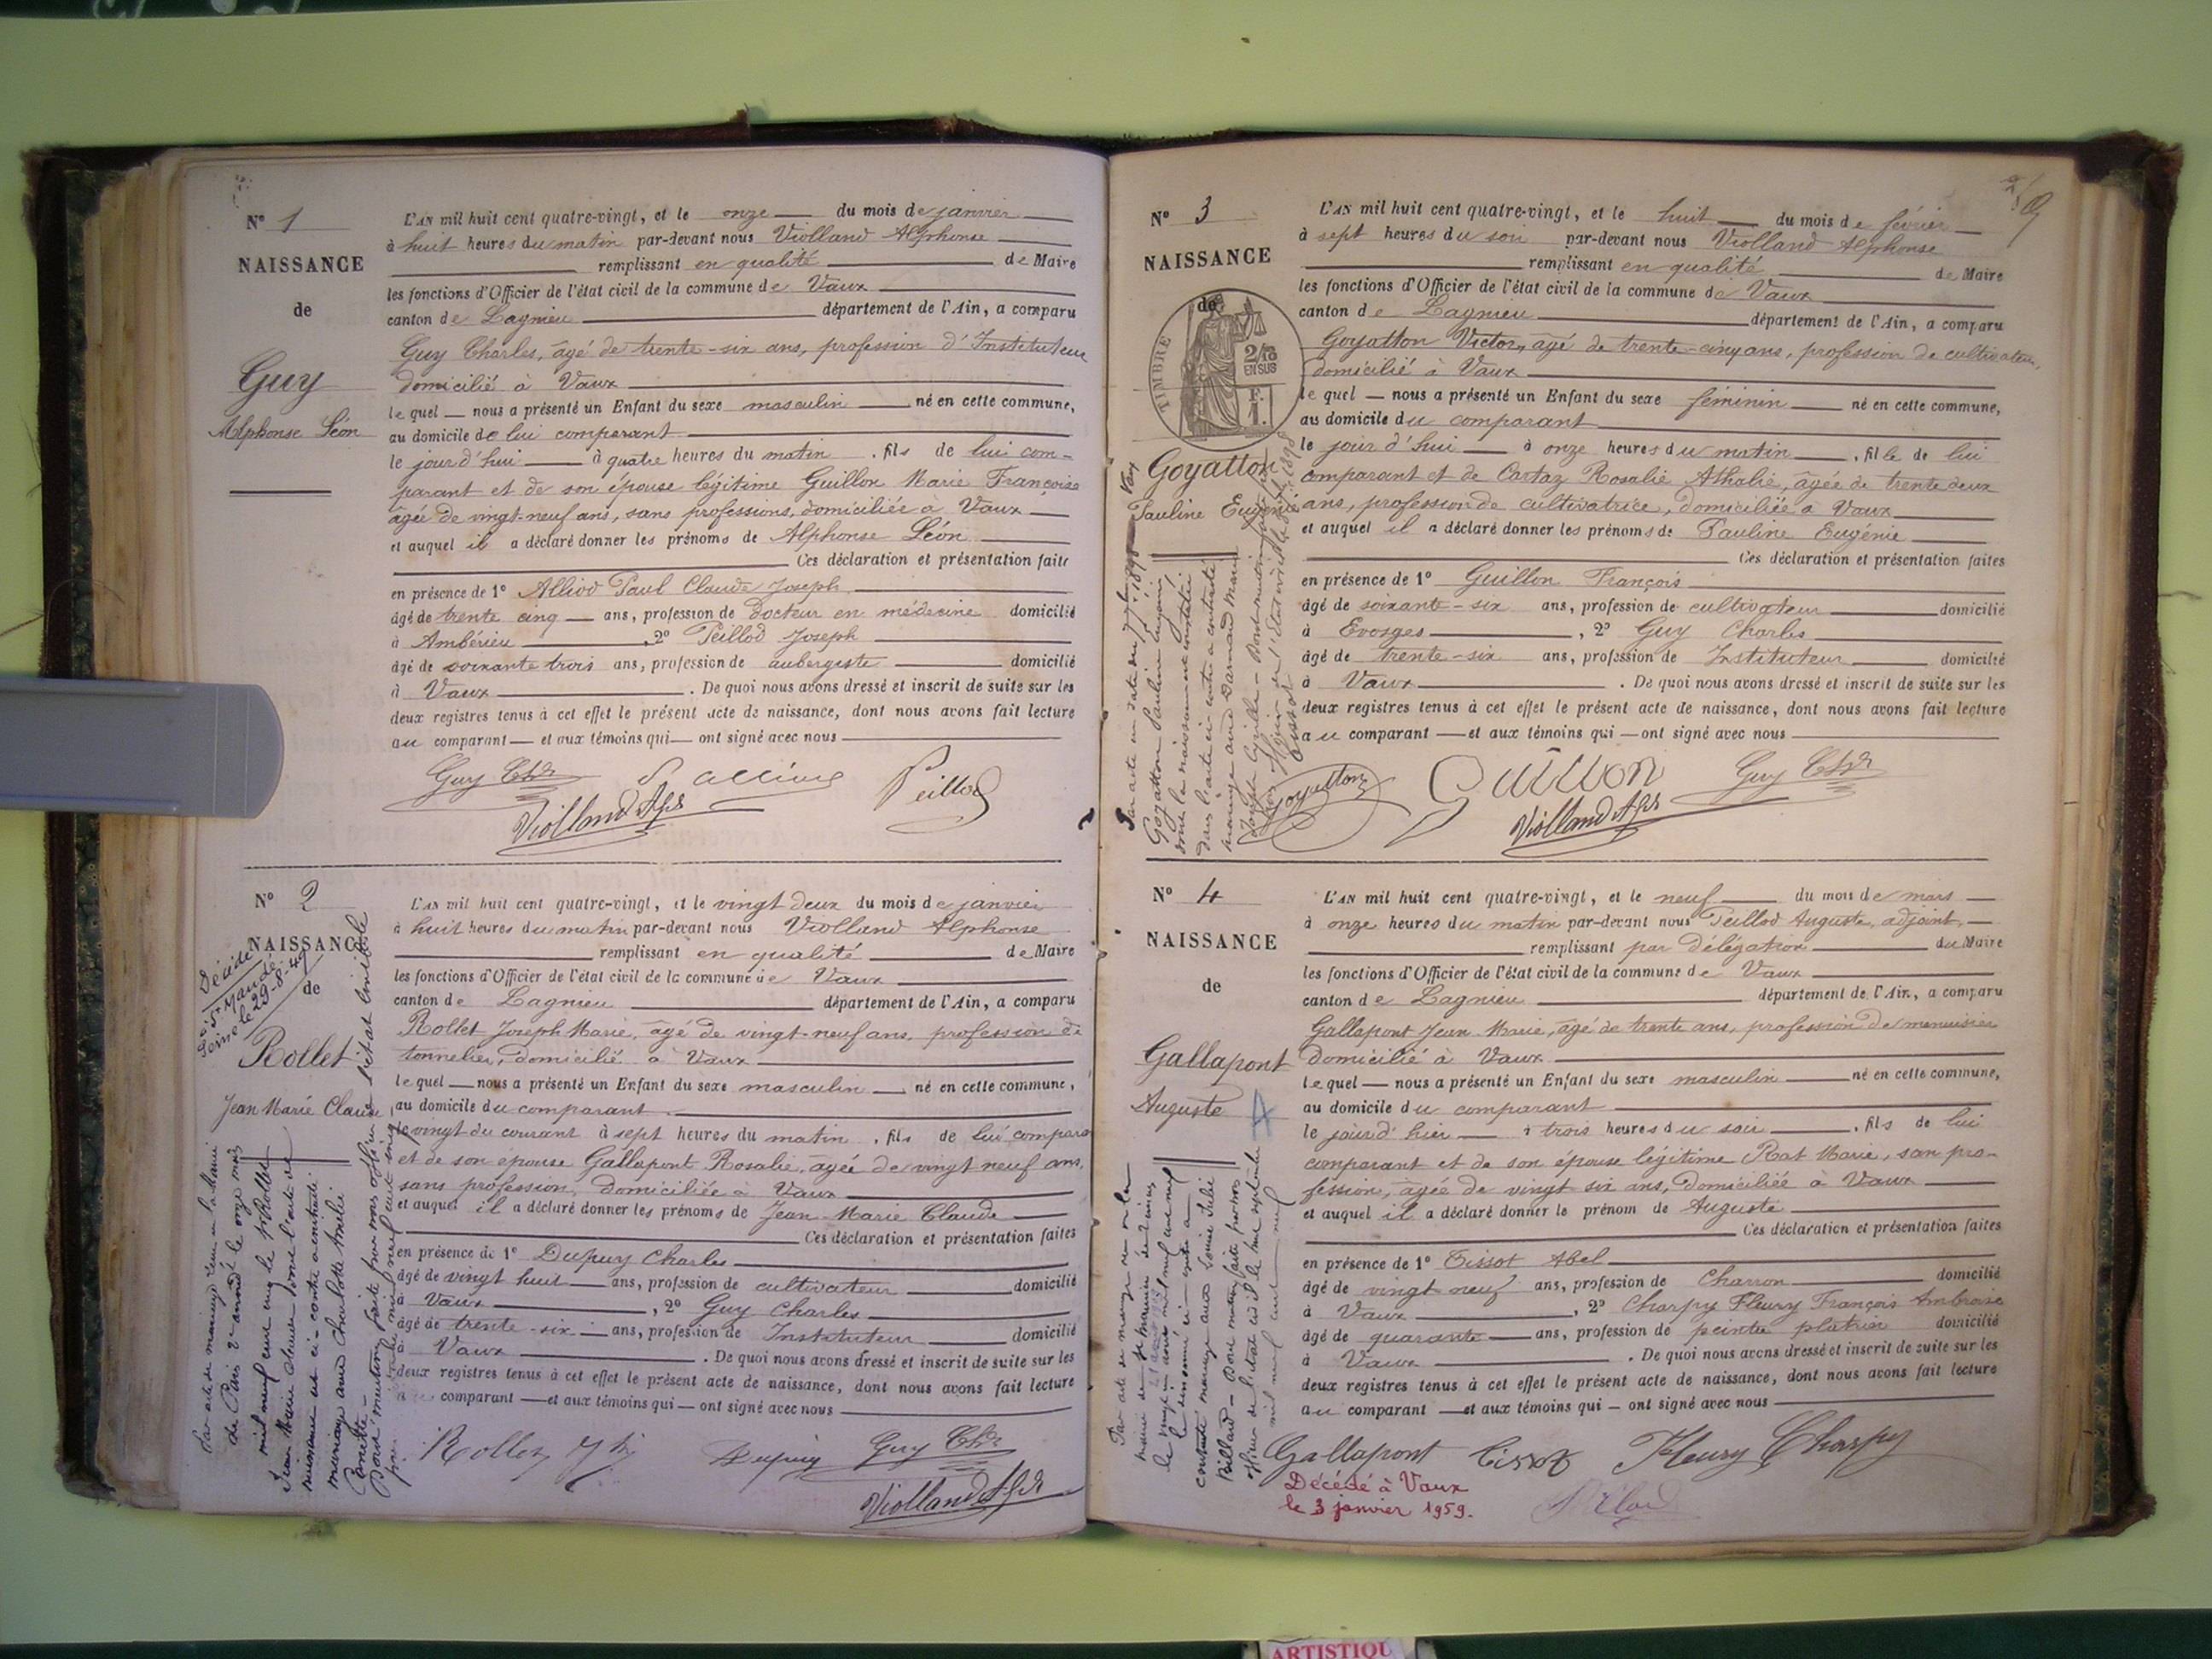 N° 1
NAISSANCE
de
Guy
Alphonse Léon
L'AN mil huit cent quatre-vingt, et le onze du mois de janvier
à huit heures du matin par-devant nous Violland Alphonse
remplissant en qualité de Maire
les fonctions d'Officier de l'état civil de la commune de Vaux
canton de Lagnieu département de l'Ain, a comparu
Guy Charles, âgé de trente-six ans, profession d'Instituteur
domicilié à Vaux
le quel nous a présenté un Enfant du sexe masculin né en cette commune,
au domicile de lui comparant
le jour d'hui à quatre heures du matin, fils de lui com-
parant et de son épouse légitime Guillon Marie Françoise
âgée de vingt-neuf ans, sans professions, domiciliée à Vaux
et auquel il a déclaré donner les prénoms de Alphonse Léon
Ces déclaration et présentation faites
en présence de 1° Alliod Paul Claude Joseph
âgé de trente cinq ans, profession de Docteur en médecine domicilié
à Ambérieu, 2° Peillod Joseph
âgé de soixante trois ans, profession de aubergiste domicilié
à Vaux. De quoi nous avons dressé et inscrit de suite sur les
deux registres tenus à cet effet le présent acte de naissance, dont nous avons fait lecture
au comparant et aux témoins qui ont signé avec nous
Guy Chs Peillod
Violland Aps
N° 2
NAISSANCE
de
Décédé
St Mandé
Seine le 29-8-40
Rollet
Jean Marie Claude
L'AN mil huit cent quatre-vingt, et le vingt deux du mois de janvier
à huit heures du matin par-devant nous Violland Alphonse
remplissant en qualité de Maire
les fonctions d'Officier de l'état civil de la commune de Vaux
canton de Lagnieu département de l'Ain, a comparu
Rollet Joseph Marie, âgé de vingt-neuf ans, profession de
tonnelier, domicilié à Vaux
le quel nous a présenté un Enfant du sexe masculin né en cette commune,
au domicile du comparant
le vingt du courant à sept heures du matin, fils de lui comparant
et de son épouse Gallapont Rosalie, âgée de vingt neuf ans,
sans profession, domiciliée à Vaux
et auquel il a déclaré donner les prénoms de Jean-Marie Claude
Ces déclaration et présentation faites
en présence de 1° Dupuy Charles
âgé de vingt huit ans, profession de cultivateur domicilié
à Vaux, 2° Guy Charles
âgé de trente-six ans, profession de Instituteur domicilié
à Vaux. De quoi nous avons dressé et inscrit de suite sur les
deux registres tenus à cet effet le présent acte de naissance, dont nous avons fait lecture
au comparant et aux témoins qui ont signé avec nous
Dupuy Guy Chs
Violland Aps
N° 3
NAISSANCE
de
TIMBRE
2/10
EN SUS
F.
1.
Goyatton
Pauline Eugénie
L'AN mil huit cent quatre-vingt, et le huit du mois de février
à sept heures du soir par-devant nous Violland Alphonse
remplissant en qualité de Maire
les fonctions d'Officier de l'état civil de la commune de Vaux
canton de Lagnieu département de l'Ain, a comparu
Goyatton Victor, âgé de trente-cinq ans, profession de cultivateur,
domicilié à Vaux
le quel nous a présenté un Enfant du sexe féminin né en cette commune,
au domicile du comparant
le jour d'hui à onze heures du matin, fille de lui
comparant et de Cortaz Rosalie Athalie, âgée de trente deux
ans, profession de cultivatrice, domiciliée à Vaux
et auquel il a déclaré donner les prénoms de Pauline Eugénie
Ces déclaration et présentation faites
en présence de 1° Guillon François
âgé de soixante-six ans, profession de cultivateur domicilié
à Evosges, 2° Guy Charles
âgé de trente-six ans, profession de Instituteur domicilié
à Vaux. De quoi nous avons dressé et inscrit de suite sur les
deux registres tenus à cet effet le présent acte de naissance, dont nous avons fait lecture
au comparant et aux témoins qui ont signé avec nous
Goyatton Guillon Guy Chs
Violland Aps
N° 4
NAISSANCE
de
Gallapont
Auguste
L'AN mil huit cent quatre-vingt, et le neuf du mois de mars
à onze heures du matin par-devant nous Peillod Auguste, adjoint,
remplissant par délégation du Maire
les fonctions d'Officier de l'état civil de la commune de Vaux
canton de Lagnieu département de l'Ain, a comparu
Gallapont Jean Marie, âgé de trente ans, profession de menuisier
domicilié à Vaux
le quel nous a présenté un Enfant du sexe masculin né en cette commune,
au domicile du comparant
le jour d'hier à trois heures du soir, fils de lui
comparant et de son épouse légitime Rat Marie, san pro-
fession, âgée de vingt six ans, domiciliée à Vaux
et auquel il a déclaré donner le prénom de Auguste
Ces déclaration et présentation faites
en présence de 1° Tissot Abel
âgé de vingt neuf ans, profession de Charron domicilié
à Vaux, 2° Charpy Fleury François Ambroise
âgé de quarante ans, profession de peintre plâtrier domicilié
à Vaux. De quoi nous avons dressé et inscrit de suite sur les
deux registres tenus à cet effet le présent acte de naissance, dont nous avons fait lecture
au comparant et aux témoins qui ont signé avec nous
Gallapont Tissot Fleury Charpy
Décédé à Vaux
le 3 janvier 1959.
ARTISTIQU